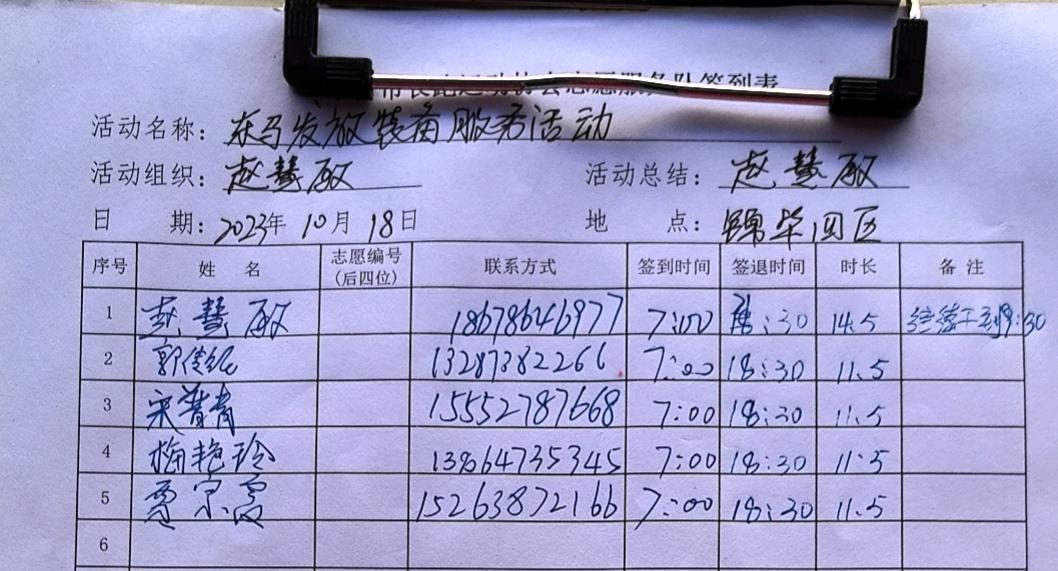 志愿服务队签到表
活动名称：东马发放装备服务活动
活动组织：赵慧敏 活动总结：赵慧敏
日 期：2023年10月18日 地 点：锦华园区
序号 姓 名 志愿编号(后四位) 联系方式 签到时间 签退时间 时长 备 注
1 赵慧敏 18678646977 7:00 :30 14.5
2 郭 13287382266 7:00 18:30 11.5
3 宋 青 15552787668 7:00 18:30 11.5
4 梅艳玲 13864735345 7:00 18:30 11.5
5 贾宗霞 15263872166 7:00 18:30 11.5
6